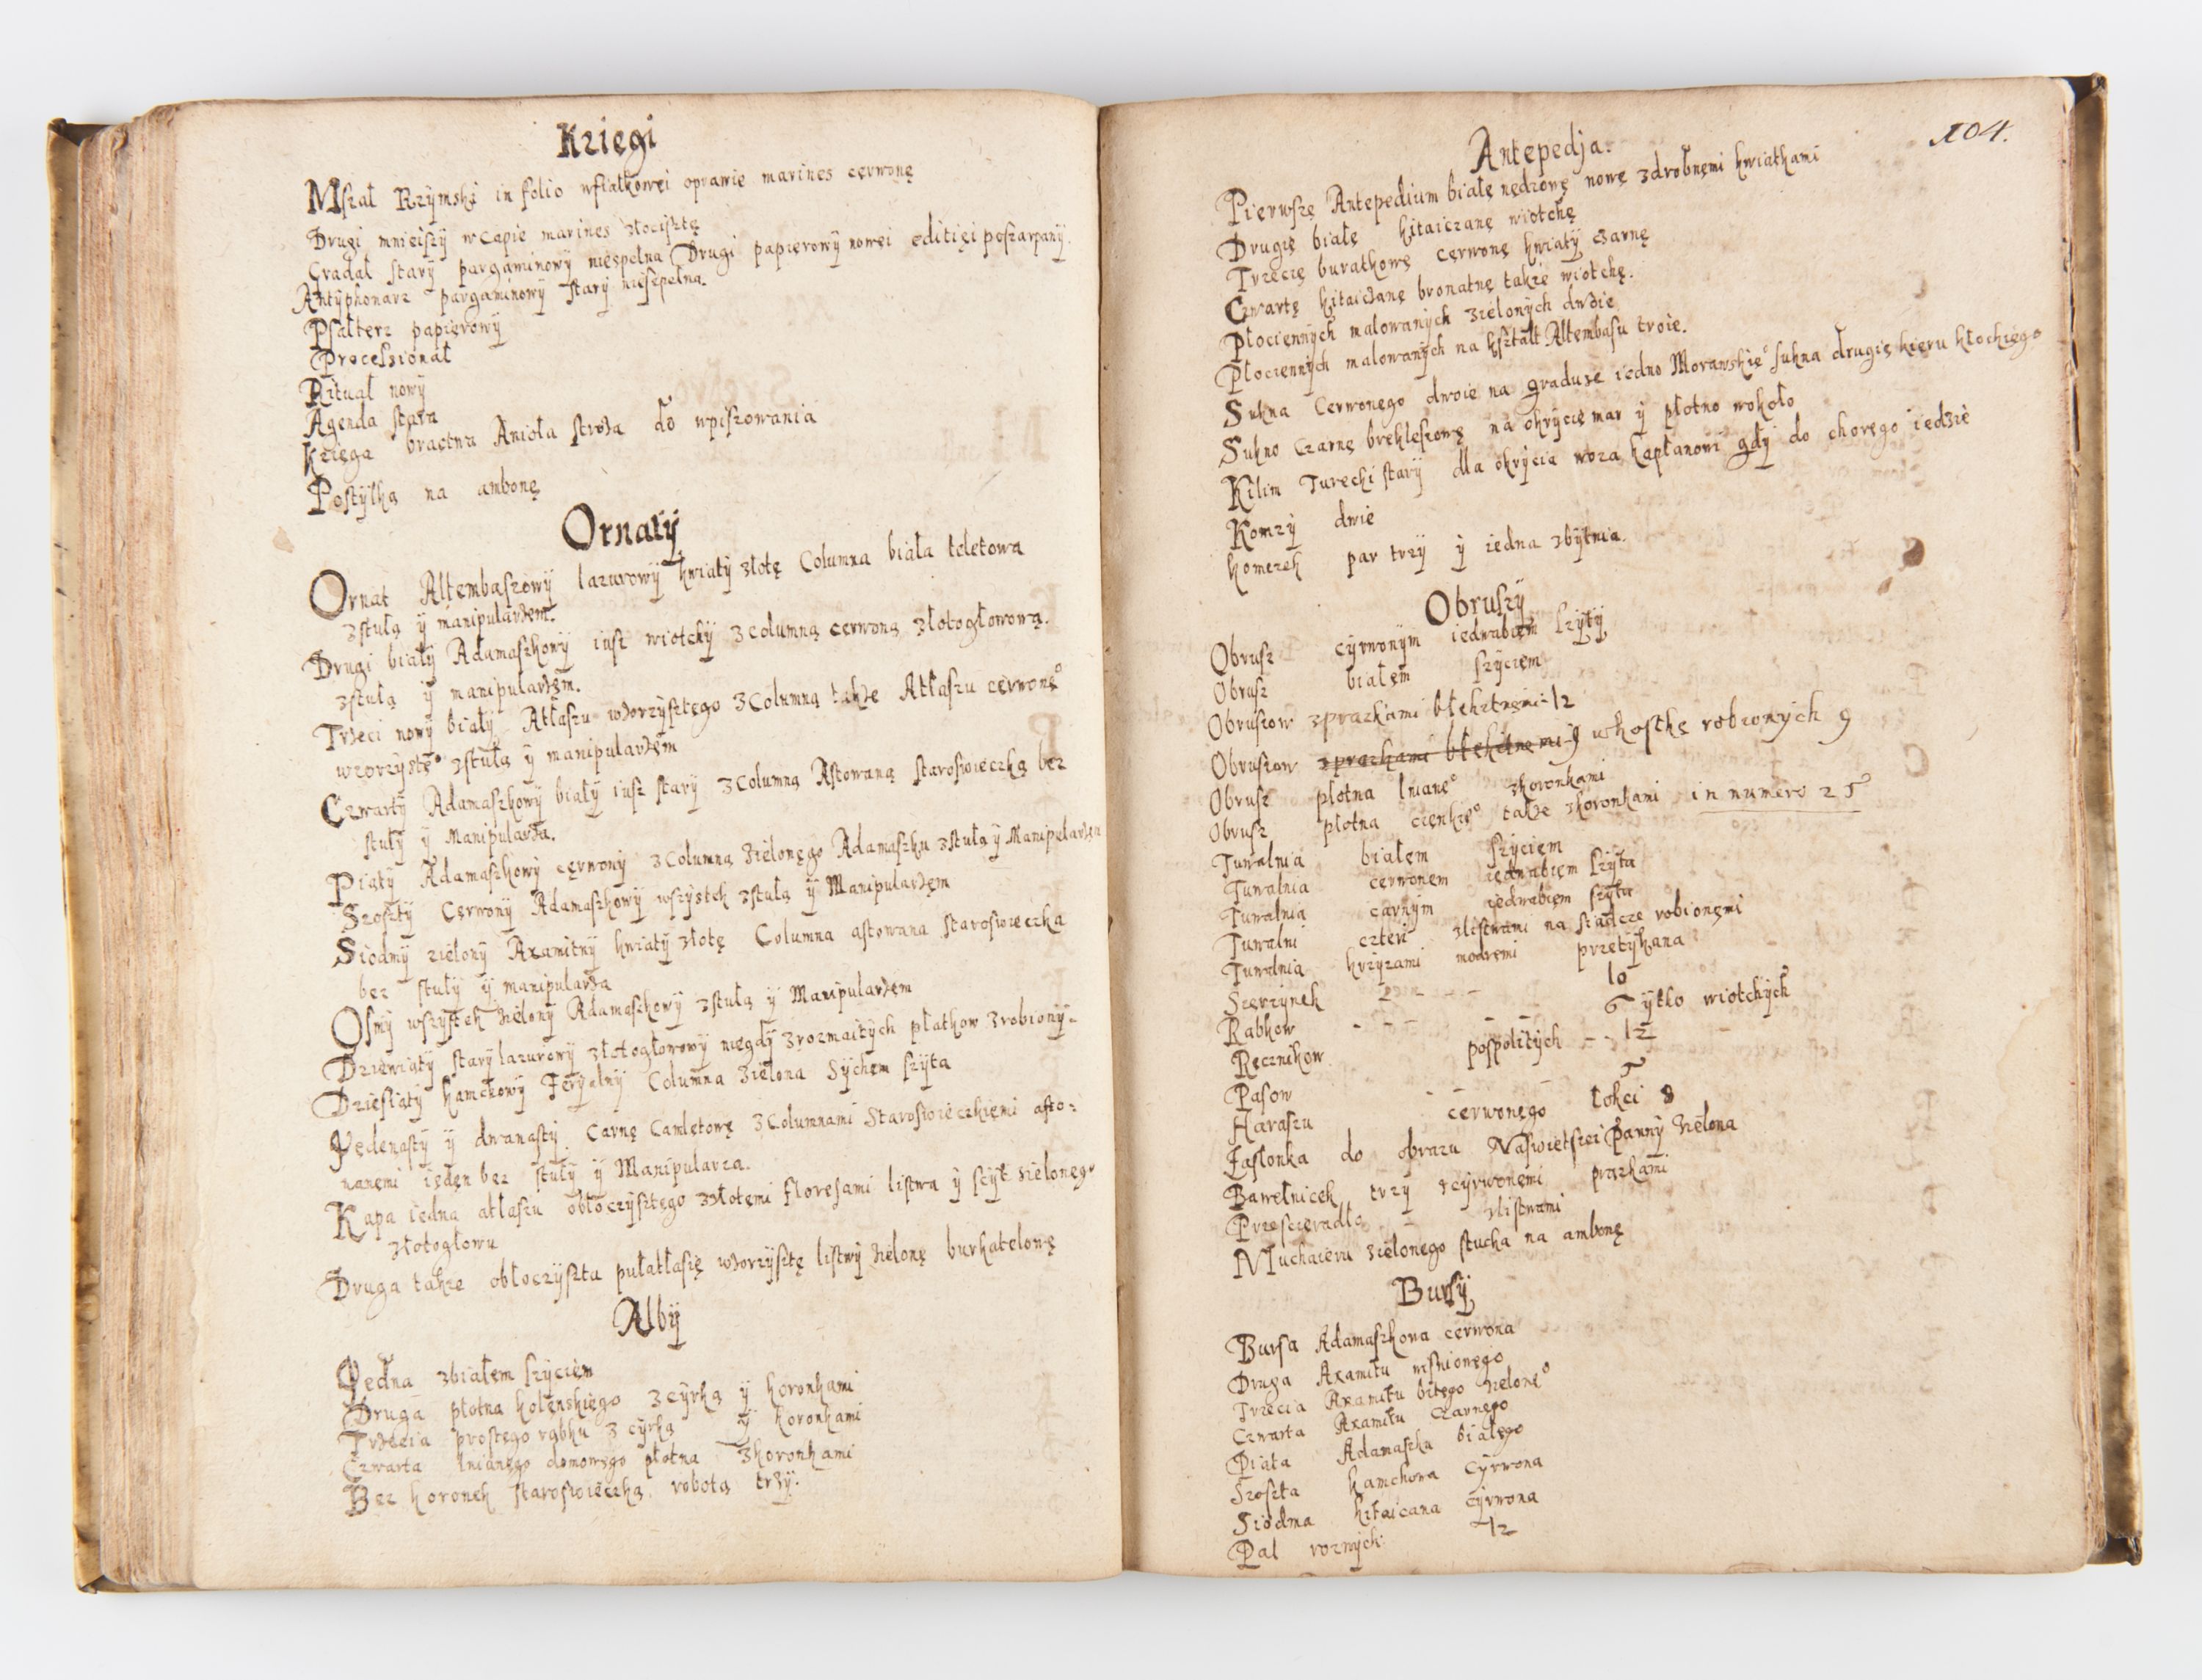 Kzięgi
Mszał Rzymski in folio wfiałkowęi oprawie marines cęrwonę
Drugi mnieiszÿ w capie marines złocisztę
Gradał starÿ pargaminowÿ niespełna Drugi papięrowÿ nowei editięi poszarpanÿ.
Antÿphonarz pargaminowÿ starÿ niesepełna.
Psałterz papięrowÿ
Processionał
Ritual nowÿ
Agenda stara
Kzięga bractwa Anioła stroża do wpiszowania
Postÿlką na ambonę
Ornatÿ
Ornat Altembaszowÿ lazurowÿ kwiatÿ złotę Columna biała teletowa
zstułą ÿ manipularżem.
Drugi białÿ Adamaszkowÿ iusz wiotchÿ z columną cęrwoną złotogłowową.
zstułą ÿ manipularżęm.
Trżeci nowÿ białÿ Atłaszu wżorzÿsztęgo z Columną takżę Atłaszu cęrwonę°
wzorzÿstę° zstułą ÿ manipularżęm
Czwartÿ Adamaszkowÿ białÿ iusz starÿ z Columną Astowaną staroswieczką bez
stułÿ ÿ Manipularża.
Piątÿ Adamaszkowÿ cęrwonÿ z Columną żielonęgo Adamaszku zstułą ÿ Manipularżęm
Szosztÿ Cęrwonÿ Adamaszkowÿ wszÿstek zstułą ÿ Manipularżęm
Siodmÿ zielonÿ Axamitnÿ kwiatÿ złotę Columna astowana staroswieczka
bez stułÿ ÿ manipularża
Osmÿ wszÿstek żielonÿ Adamaszkowÿ zstułą ÿ Manipularżęm
Dziewiątÿ starÿ lazurowÿ złotogłowowÿ niegdÿ zrozmaitÿch płatkow zrobionÿ-
Dziesiątÿ kamchowÿ Ferÿalnÿ Columna zielona Sÿchem szÿta
Jedenastÿ ÿ dwanastÿ Carnę Camletowę z Columnami Staroswieczkięmi asto:
nanęmi iedęn bez stułÿ ÿ Manipularza.
Kapa iedna atłaszu obłoczÿsztego złotęmi floresami listwa ÿ scÿt zielonęgo
złotogłowu
Druga takze obłoczÿszta pułatłasię wżorzÿsztę listwÿ żielonę burkatelonę
Albÿ
Jędna zbiałem szÿciem
Druga płotna kolęnskięgo z cÿrką ÿ koronkami
Trżecia prostęgo rąbku z cÿrką ÿ koronkami
Czwarta lnianęgo domowęgo płotna zkoronkami
Bez koronek staroswieczką robotą trzÿ.
104.
Antepedja.
Pięrwszę Antepedium białę nędzowę nowę zdrobnęmi kwiatkami
Drugię białę kitaiczanę wiotchę
Trzecię buratkowę cęrwonę kwiatÿ czarnę
Czwartę kitaiczanę bronatnę takze wiotchę.
Płociennÿch malowanÿch zielonÿch dwoie
Płociennÿch malowanÿch na kształt Altembasu troie.
Sukna Cerwonęgo dwoie na graduse iedno Morawskię° sukna drugię kięru kłockięgo
Sukno Czarnę brekleszowę na okrÿcię mar ÿ płotno wokoło
Kilim Turecki starÿ dla okrÿcia woza kapłanowi gdÿ do chorego iedzie
Komzÿ dwie
Komezek par trzÿ ÿ iedna zbÿtnia.
Obruszÿ
Obrusz cÿrwonÿm iedwabięm szÿtÿ
Obrusz białęm szÿcięm
Obruszow zprazkami błękitnęmi 12
Obruszow zprazkami błękitnemi 9 wkostkę robionÿch 9
Obrusz płotna lnianę° zkoronkami
Obrusz płotna cięnkię° takżę zkoronkami in numero 25
Tuwalnia białęm szÿcięm
Tuwalnia cerwonem iedwabięm szÿta
Tuwalnia carnÿm iedwabiem szÿta
Tuwalni czteri zlistwami na siadcze robionęmi
Tuwalnia krzÿzami modręmi przetÿkana
Szerzÿnek 10
Rąbkow 6 ÿtko wiotchÿch
Ręcznikow pospolitÿch 12
Pasow 5
Haraszu cerwonęgo łokci 8
Zasłonka do obrazu Naswiętszei Pannÿ żielona
Bawełnicek trzÿ zcÿrwonęmi prązkami
Przescieradło zlistwami
Muchaieru zielonego stucka na ambonę
Bursÿ
Bursa Adamaszkowa cerwona
Druga Axamitu wisniowęgo
Trzecia Axamitu bitęgo żielonę°
Czwarta Axamitu czarnęgo
Piąta Adamaszku białęgo
Szoszta kamchowa Cÿrwona
Siodma kitaicana cÿrwona
Pal roznÿch 12